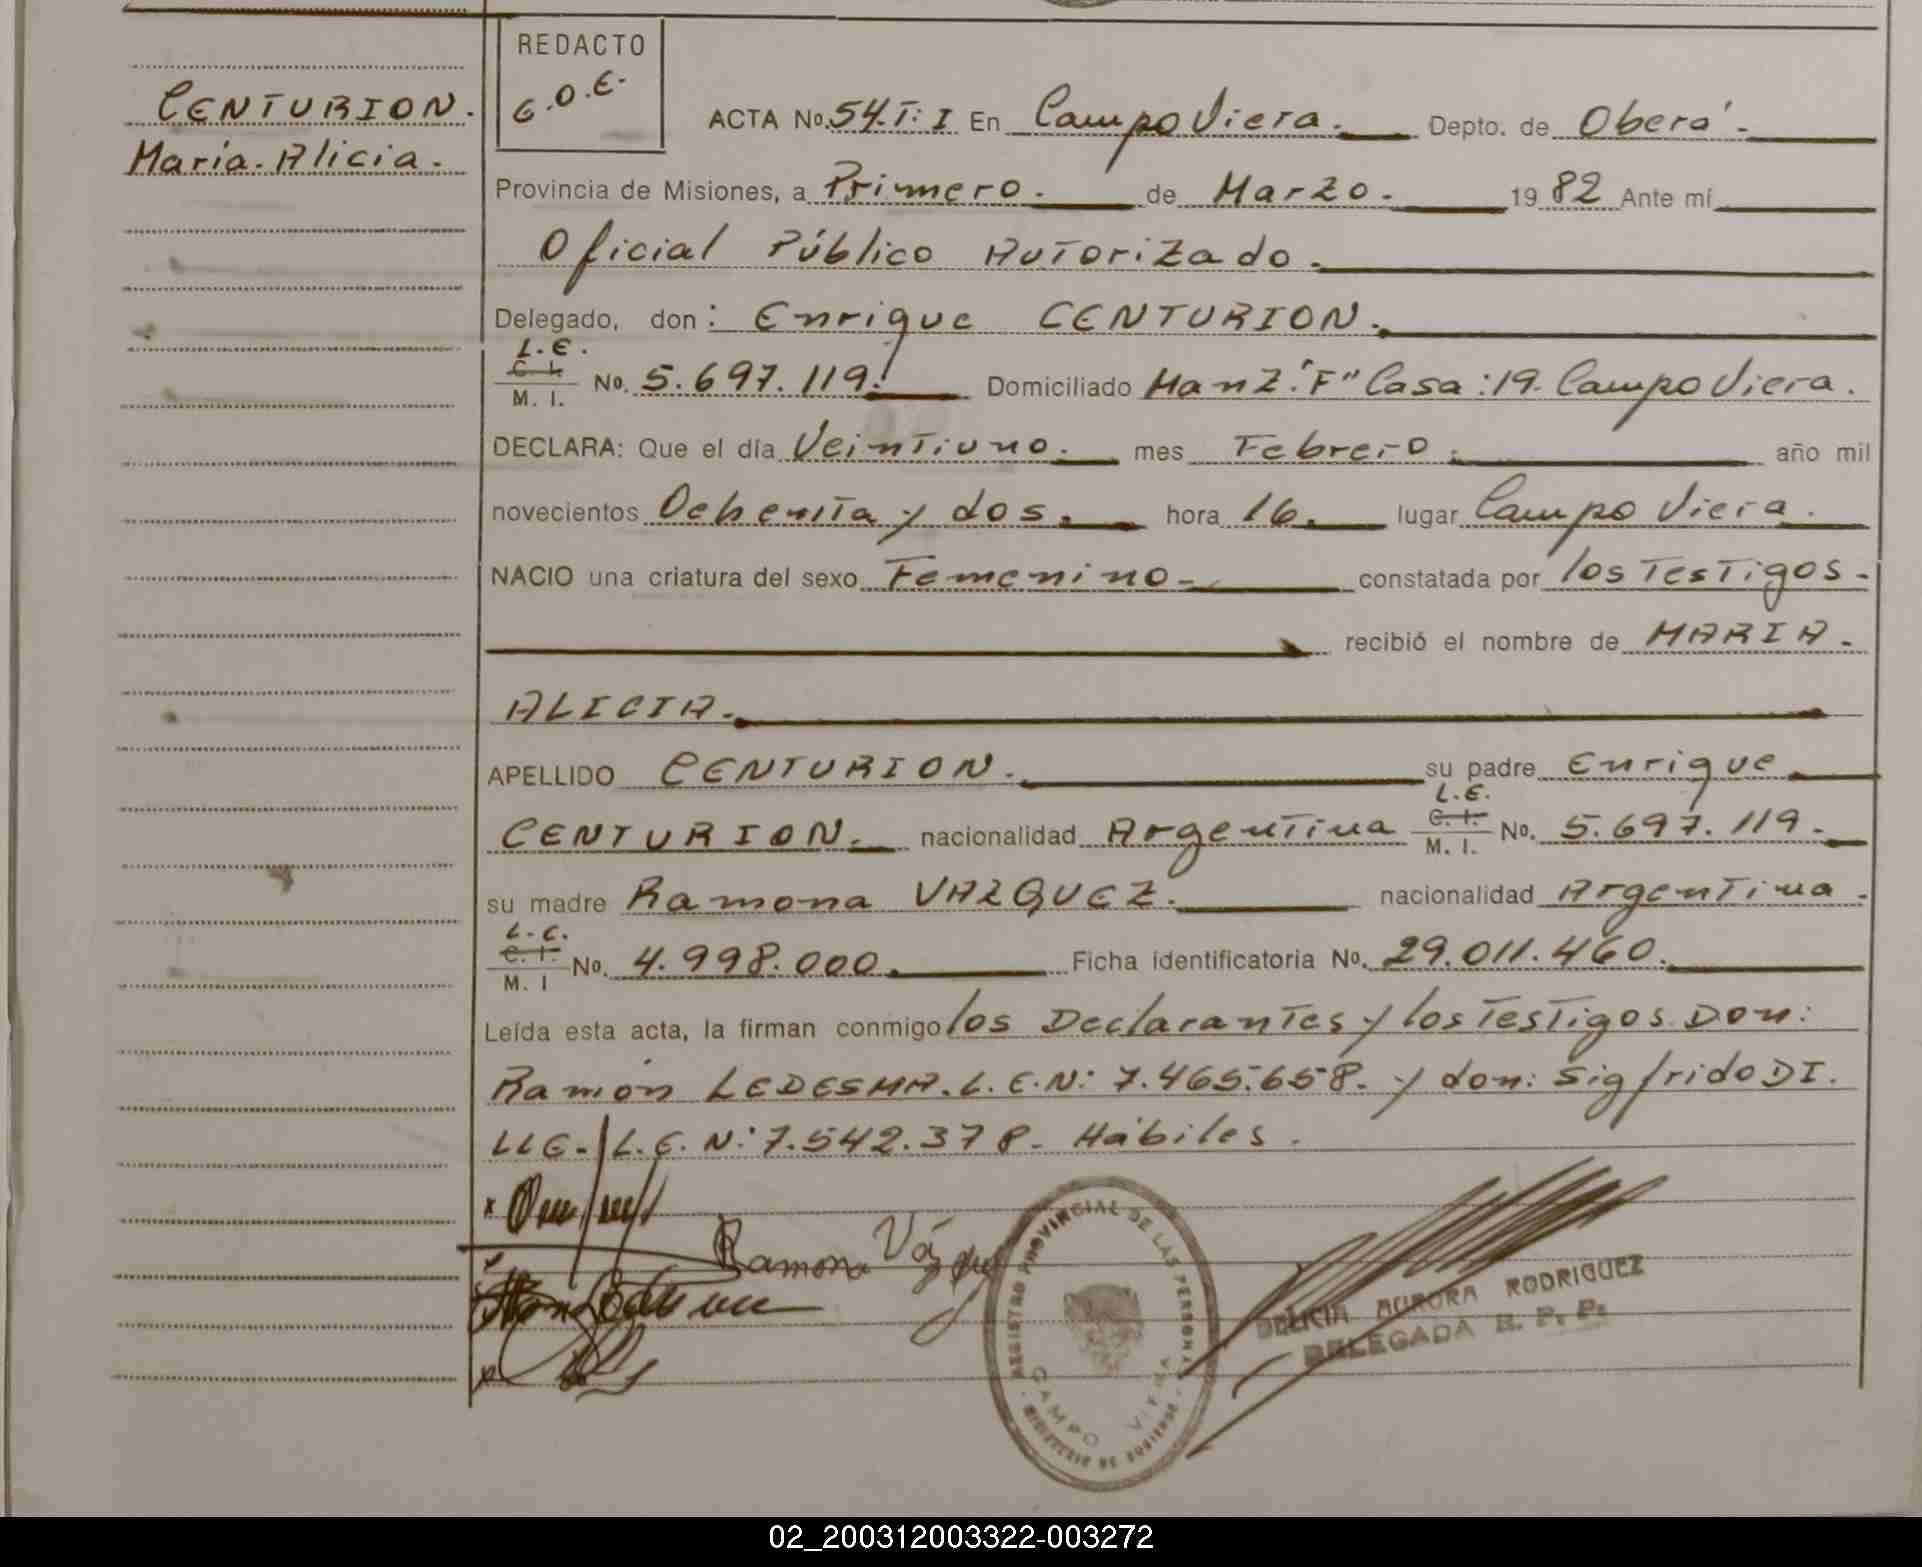 CENTURION.
María. Alicia.
REDACTO
G.O.E.
ACTA No. 54.T: I En Campo Viera. Depto. de Oberá.
Provincia de Misiones, a Primero. de Marzo. 1982 Ante mí
Oficial Público Autorizado.
Delegado, don: Enrique CENTURION.
L.E.
C. I.
M. I.
No. 5.697.119. Domiciliado Manz."F" Casa:19. Campo Viera.
DECLARA: Que el día Veintiuno. mes Febrero. año mil
novecientos Ochenta y dos. hora 16. lugar Campo Viera.
NACIO una criatura del sexo Femenino- constatada por los Testigos.
recibió el nombre de MARIA.
ALICIA.
APELLIDO CENTURION. su padre Enrique
L.E.
CENTURION. nacionalidad Argentina C. I. No. 5.697.119.
M. I.
su madre Ramona VAZQUEZ. nacionalidad Argentina.
L.C.
C. I.
M. I
No. 4.998.000. Ficha identificatoria No. 29.011.460.
Leída esta acta, la firman conmigo los Declarantes y los Testigos. Don:
Ramón LEDESMA. L.E.N: 7.465.658. y don: Sigfrido DI.
LLE. L.E. N: 7.542.378. Hábiles.
Ramona Vázquez
REGISTRO PROVINCIAL DE LAS PERSONAS
CAMPO VIERA
MINISTERIO DE GOBIERNO
DELICIA AURORA RODRIGUEZ
DELEGADA R. P. P.
02_200312003322-003272